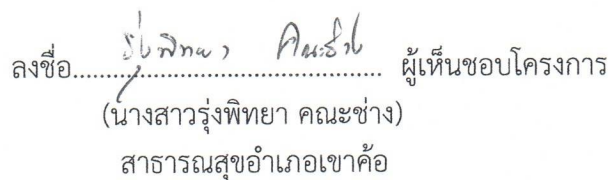 ลงชื่อ รุ่งพิทยา คณะช่าง ผู้เห็นชอบโครงการ
(นางสาวรุ่งพิทยา คณะช่าง)
สาธารณสุขอำเภอเขาค้อ